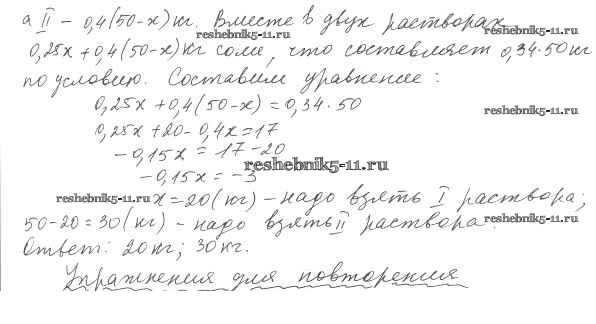 а II – 0,4(50-x) кг. Вместе в двух растворах
reshebnik5-11.ru
0,25x + 0,4(50-x) кг соли, что составляет 0,34·50 кг
по условию. Составим уравнение:
0,25x + 0,4(50-x) = 0,34·50
reshebnik5-11.ru
0,25x + 20 - 0,4x = 17
-0,15x = 17-20
reshebnik5-11.ru
-0,15x = -3
reshebnik5-11.ru
x = 20 (кг) – надо взять I раствора;
50-20 = 30 (кг) – надо взять II раствора.
reshebnik5-11.ru
Ответ: 20 кг; 30 кг.
Упражнения для повторения